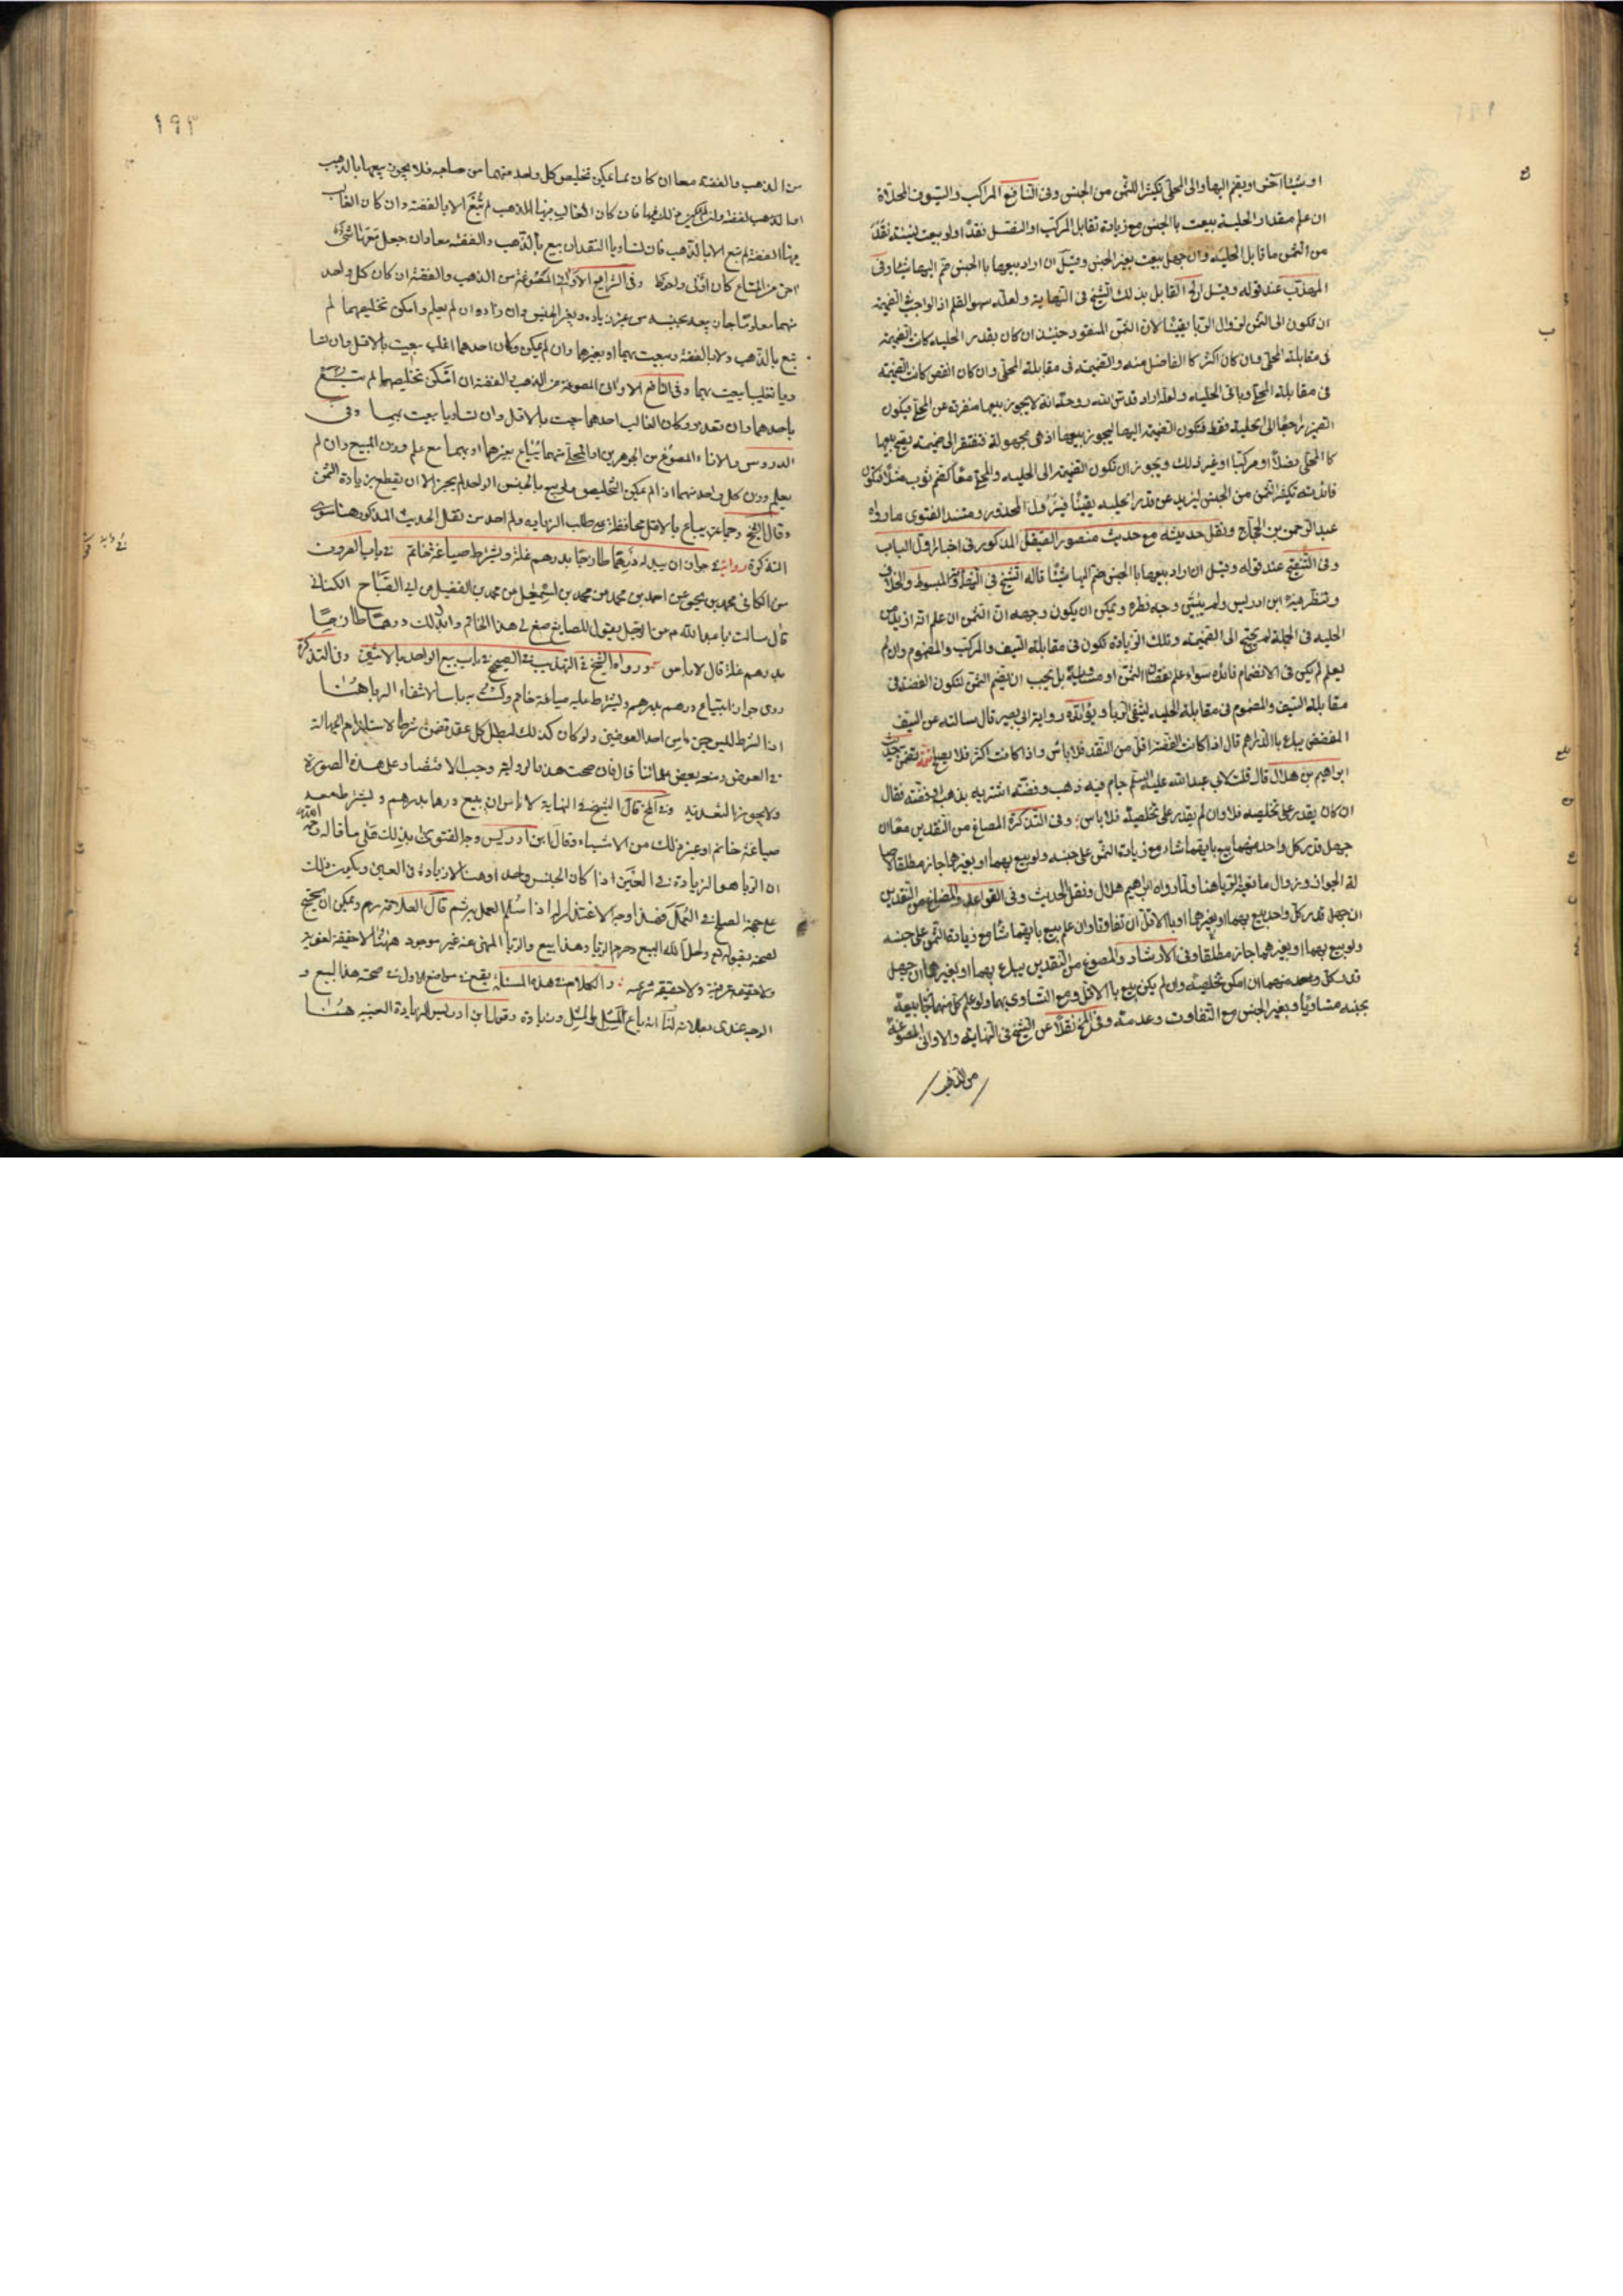 او شيئا آخر او يضم اليها والى المحلى تكثيرا للثمن من الجنس وفى النافع المراكب والسيوف المحلاة
ان علم مقدار الحلية بيعت بالجنس مع زيادة تقابل المركب او النصل نقدا ولو بيعت نسيئة نقد
من الثمن ما قابل الحلية وان جهل بيعت بغير الجنس وقيل ان اراد بيعها بالجنس ضم اليها شيئا وفى
المهذب عند قوله وقيل ان القايل بذلك الشيخ فى النهاية ولعله سهو القلم اذ الواجب الضميمة
ان تكون الى الثمن لزوال الربا يقينا لان الثمن المنقود حينئذ ان كان بقدر الحلية كانت الضميمة
فى مقابلة المحلى وان كان اكثر كا الفاضل منه والضميمة فى مقابلة المحلى وان كان انقص كانت الضميمة
فى مقابلة المحلى وباقى الحلية ولعله اراد قدس الله روحه انه لا يجوز بيعها منفردة عن المحلى فيكون
الضمير راجعا الى الحلية فقط فتكون الضميمة اليها ليجوز بيعها اذ هى مجهولة فتفتقر الى ضميمة يصح بيعها
كا المحلى نصلا او مركبا او غير ذلك ويجوز ان تكون الضميمة الى الحلية والمحلى معا كضم ثوب مثلا فتكون
فائدته تكثير الثمن من الجنس ليزيد عن قدر الحلية يقينا فيزول المحذور ومستند الفتوى ما رواه
عبد الرحمن بن الحجاج ونقل حديثه مع حديث منصور الصيقل المذكور فى اخبار اول الباب
وفى التنقيح عند قوله وقيل ان اراد بيعها بالجنس ضم اليها شيئا قاله الشيخ فى النهاية والمبسوط والخلاف
وتنظر فيه ابن ادريس ولم يبين وجه نظره ويمكن ان يكون وجهه ان الثمن ان علم انه ازيد من
الحلية فى الجملة لم يحتج الى الضميمة وتلك الزيادة تكون فى مقابلة السيف والمركب والمضموم وان لم
يعلم لم يكن فى الانضمام فائدة سواء علم نقصان الثمن او مساواته بل يجب ان يضم الثمن لتكون الفضة فى
مقابلة السيف والمضموم فى مقابلة الحلية لينتفى الربا ويؤيده رواية ابى بصير قال سالته عن السيف
المفضض يباع بالدراهم قال اذا كانت الفضة اقل من النقد فلا باس واذا كانت اكثر فلا يصلح حديث
ابراهيم بن هلال قال قلت لابى عبد الله عليه السلم جام فيه ذهب وفضة اشتريه بذهب او فضة فقال
ان كان يقدر على تخليصه فلا وان لم يقدر على تخليصه فلا باس وفى التذكرة المصاغ من النقدين معا ان
جهل قدر كل واحد منهما بيع بايهما شاء مع زيادة الثمن على جنسه ولو بيع بهما او بغيرهما جاز مطلقا لاصا
لة الجواز وزوال مانعية الربا هنا ولما رواه ابراهيم هلال ونقل الحديث وفى القواعد والمصاغ من النقدين
ان جهل قدر كل واحد بيع بهما او بغيرهما او بالاقل ان تفاوتا وان علم بيع بايهما شا مع زيادة الثمن على جنسه
ولو بيع بهما او بغيرهما جاز مطلقا وفى الارشاد والمصوغ من النقدين يباع بهما او بغيرهما ان جهل
قدر كل واحد منهما ان امكن تخليصه وان لم يكن بيع بالاقل ومع التساوى بهما ولو علم كل منهما جاز بيعه
بجنسه متساويا وبغير الجنس مع التفاوت وعدمه وفى المخ نقلا عن الشيخ فى النهاية والاوانى المصوغة
من الذهب
١٩٣
من الذهب والفضة معا ان كان مما يمكن تخليص كل واحد منهما من صاحبه فلا يجوز بيعها بالذهب
او بالفضة وان لم يمكن ذلك فيها فان كان الغالب فيها الذهب لم تبع الا بالفضة وان كان الغالب
فيها الفضة لم تبع الا بالذهب فان تساويا النقدان بيع بالذهب والفضة معا وان جعل معها شئ
اخر من المتاع كان اولى واحوط وفى الشرايع الاوانى المصوغة من الذهب والفضة ان كان كل واحد
منهما معلوما جاز بيعه بجنسه من غير زيادة وبغير الجنس وان زاد وان لم يعلم وامكن تخليصهما لم
تبع بالذهب ولا بالفضة وبيعت بهما او بغيرهما وان لم يمكن وكان احدهما اغلب بيعت بالاقل وان تسا
ويا تغليبا بيعت بهما وفى النافع الاوانى المصوغة من الذهب والفضة ان امكن تخليصهما لم تبع
باحدهما وان تعذر وكان الغالب احدهما بيعت بالاقل وان تساويا بيعت بهما وفى
الدروس والاناء المصوغ من الجوهرين او المحلى بهما يباع بغيرهما او بهما مع علم وزن المبيع وان لم
يعلم وزن كل واحد منهما اذا لم يمكن التخليص ولو بيع بالجنس الواحد لم يجز الا ان يقطع بزيادة الثمن
وقال الشيخ وجماعة يباع بالاقل محافظة على طلب الزيادة ولم احد من نقل الحديث المذكور هنا سوى
التذكرة رواية جواز ان يبدله درهما طازجا بدرهم غلة ويشترط صياغة خاتم فى باب الصروف
من الكافى محمد بن يحيى عن احمد بن محمد عن محمد بن اسمعيل عن محمد بن الفضيل عن ابى الصباح الكنانى
قال سالت ابا عبد الله م عن الرجل يقول للصايغ صغ لى هذا الخاتم وابدل لك درهما طازجا
بدرهم غلة قال لا باس ورواه الشيخ فى التهذيب فى الصحيح فى باب بيع الواحد بالاثنين وفى التذكرة
روى جواز ابتياع درهم بدرهم ويشترط عليه صياغة خاتم وليس به باسا لانتفاء الربا هنا
اذا الشرط لليس جزء من احد العوضين ولو كان كذلك لبطل كل عقد تضمن شرطا لاستلزام الجهالة
فى العوض ومنعه بعض علمائنا قال فان صحت هذه الرواية وجب الاقتصار على هذه الصورة
ولا يجوز التعدية وفى المخ قال الشيخ فى النهاية لا باس ان يبيع درهما بدرهم ويشترط معه
صياغة خاتم او غير ذلك من الاشياء وقال ابن ادريس وجه الفتوى بذلك على ما قاله رحمه الله
ان الربا هو الزيادة فى العين اذا كان الجنس واحد وهنا لا زيادة فى العين ويكون ذلك
على جهة الصلح فى العمل
لصحته بقوله تع واحل الله البيع وحرم الربا وهذا بيع والربا المنهى عنه غير موجود ههنا لا حقيقة لغوية
ولا حقيقة عرفية ولا حقيقة شرعية والكلام فى هذه المسئلة يقع فى مواضع الاول فى صحة هذا البيع و
الوجه عندى بطلانه لنا انه باع المثل بالمثل وزيادة وقول ابن ادريس الزيادة العينية هنا